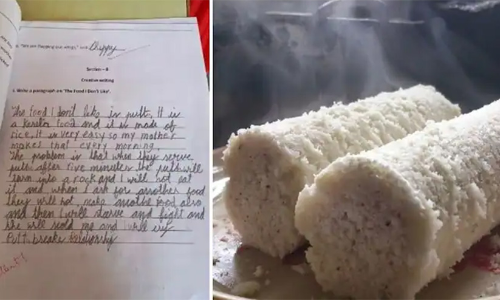 "We are flapping our wings," said Chippy
Section - B
Creative writing
1. Write a paragraph on 'The Food I Don't Like'.
The food I don't like is putt. It is
a Kerala food and it is made of
rice. It is very easy so my mother
makes that every morning.
The problem is that when they serve
putt after five minutes the putt will
turn into a rock and I will not eat
it and when I ask for another food
they will not make another food also
and then I will starve and fight and
she will scold me and I will cry
Putt breaks relationship